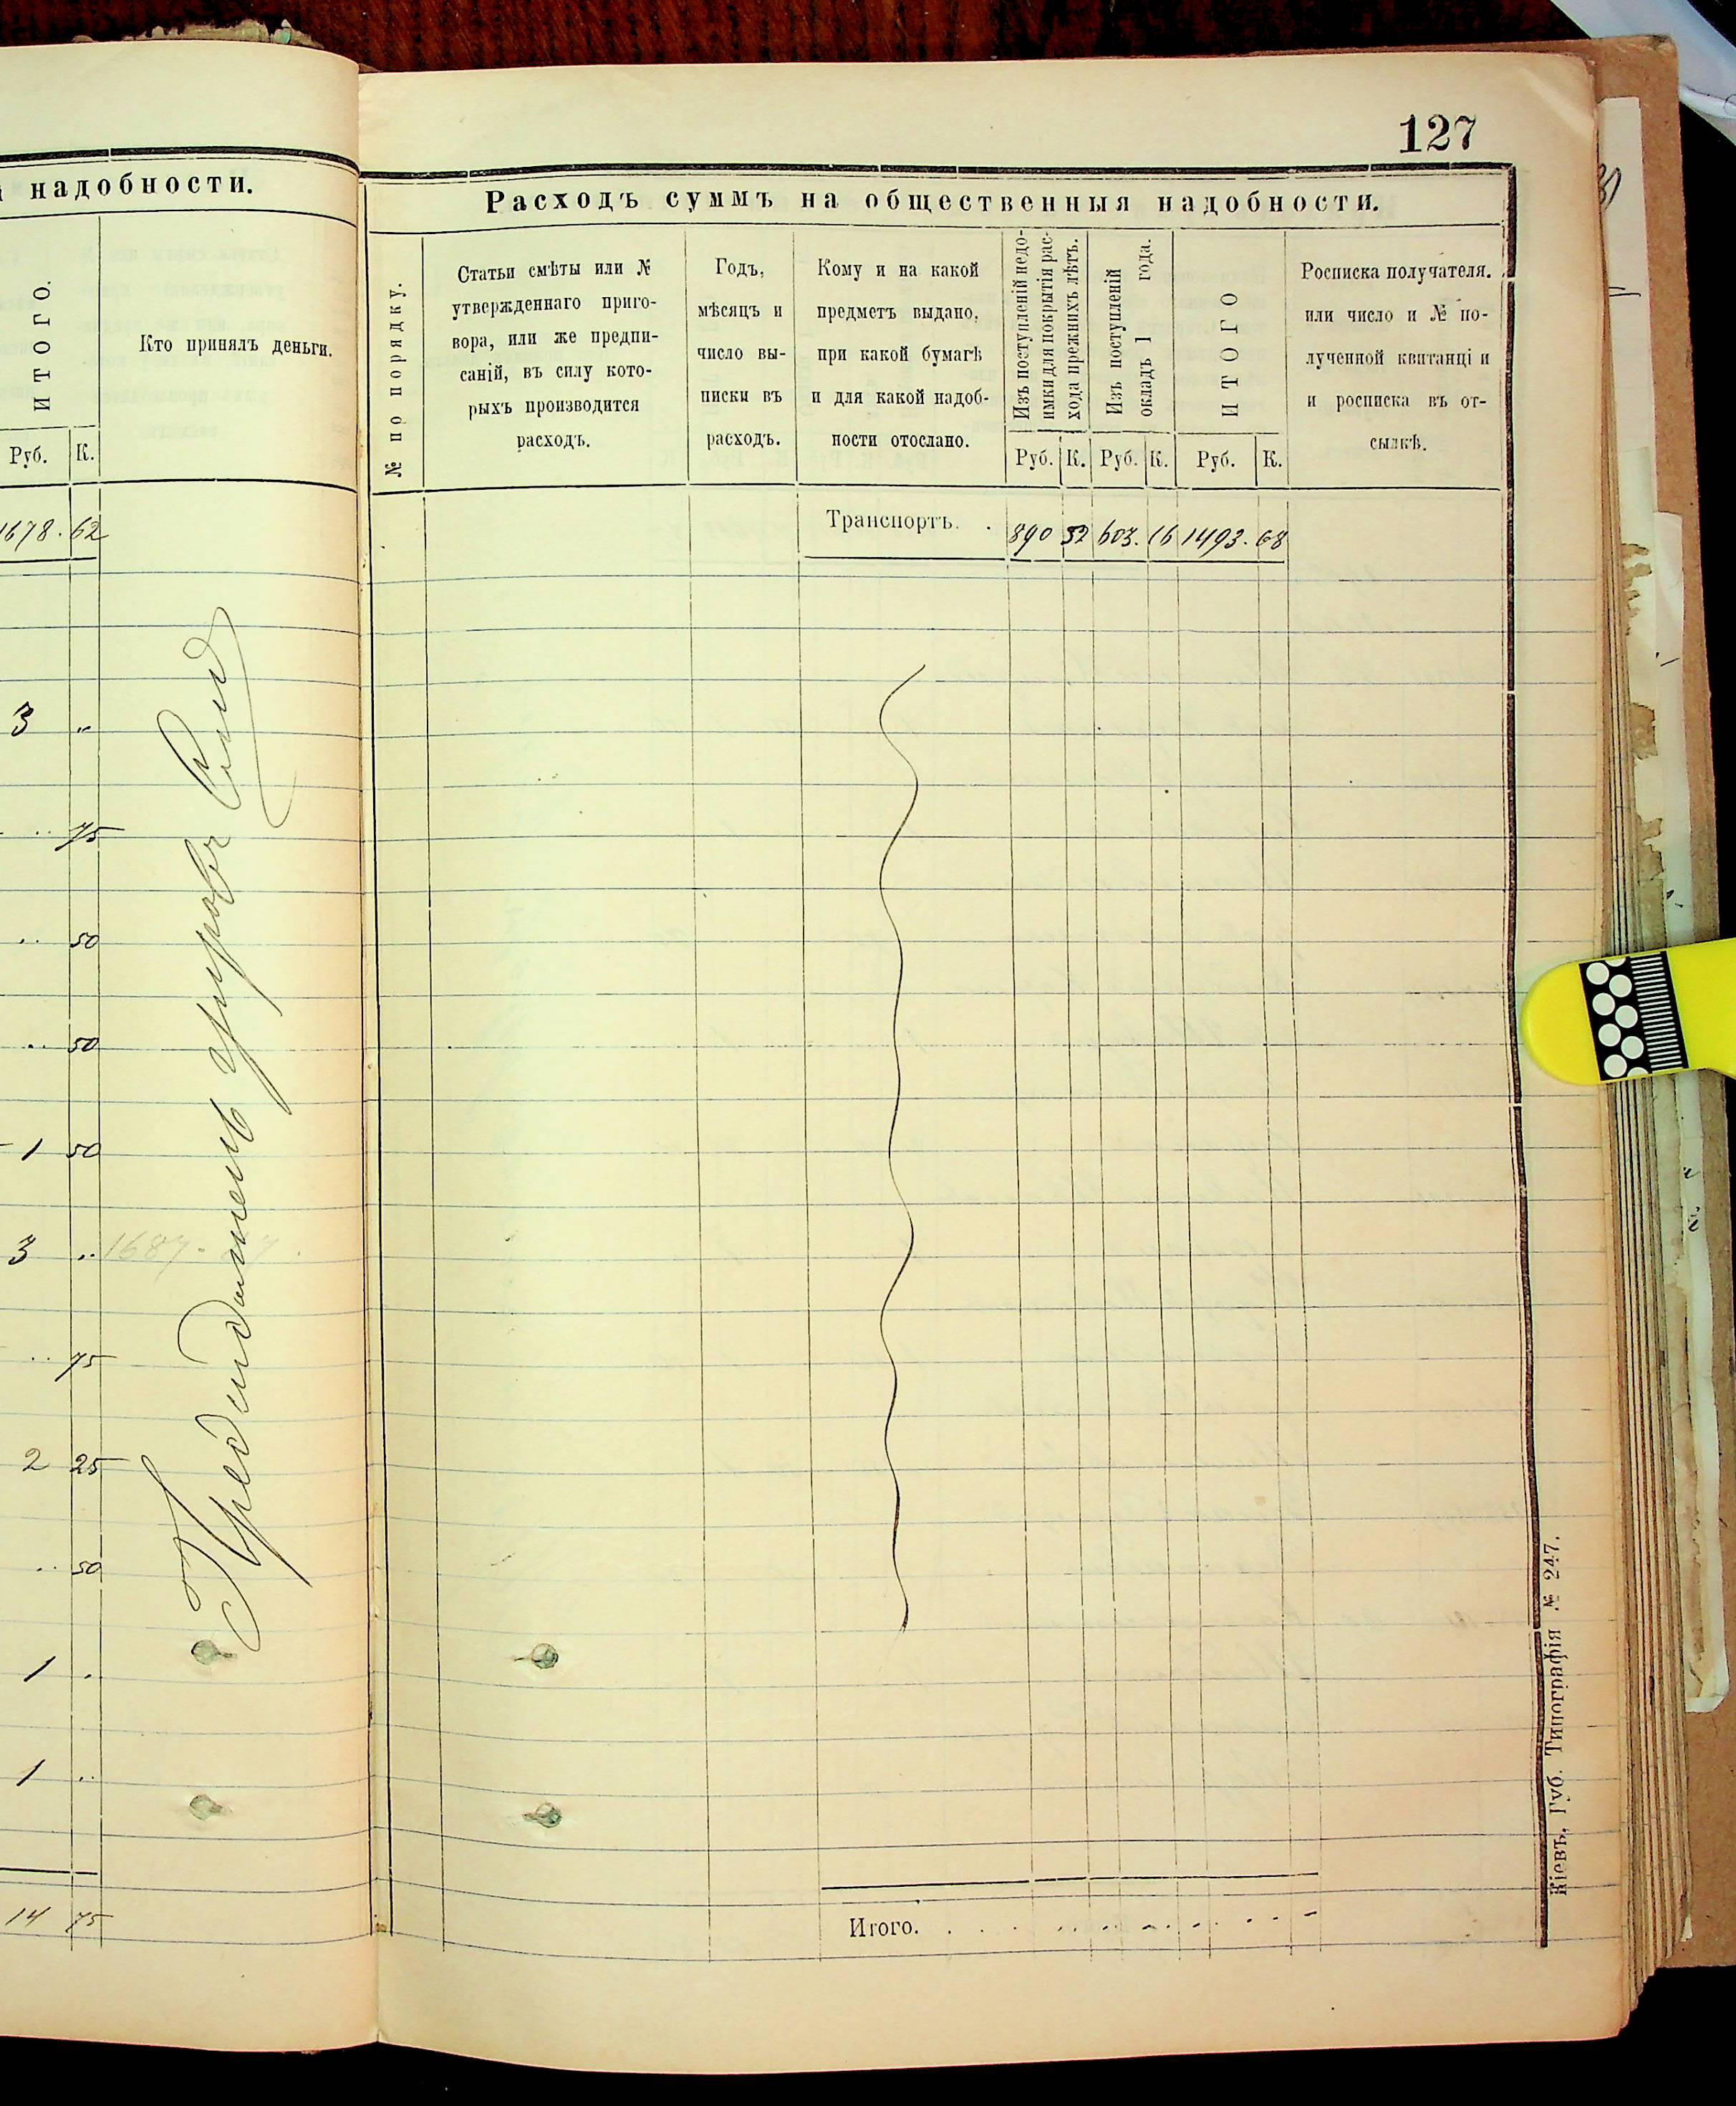 127
надобности.
ИТОГО.
Кто принялъ деньги.
Руб. К.
1678. 62
3 "
.. 75
.. 50
.. 50
1 50
3 ..
1687.
.. 75
2 25
.. 50
1 .
1 ..
14 75
Расходъ суммъ на общественныя надобности.
№ по порядку.
Статьи смѣты или №
утвержденнаго приго-
вора, или же предпи-
саній, въ силу кото-
рыхъ производится
расходъ.
Годъ,
мѣсяцъ и
число вы-
писки въ
расходъ.
Кому и на какой
предметъ выдано,
при какой бумагѣ
и для какой надоб-
ности отослано.
Изъ поступленій недо-
имки для покрытія рас-
хода прежнихъ лѣтъ.
Изъ поступленій
окладъ 1 года.
ИТОГО
Росписка получателя.
или число и № по-
лученной квитанціи
и росписка въ от-
сылкѣ.
Руб. К. Руб. К. Руб. К.
Транспортъ. . 890 52 603. 16 1493. 68
Итого.
Кіевъ, Губ. Типографія № 247.